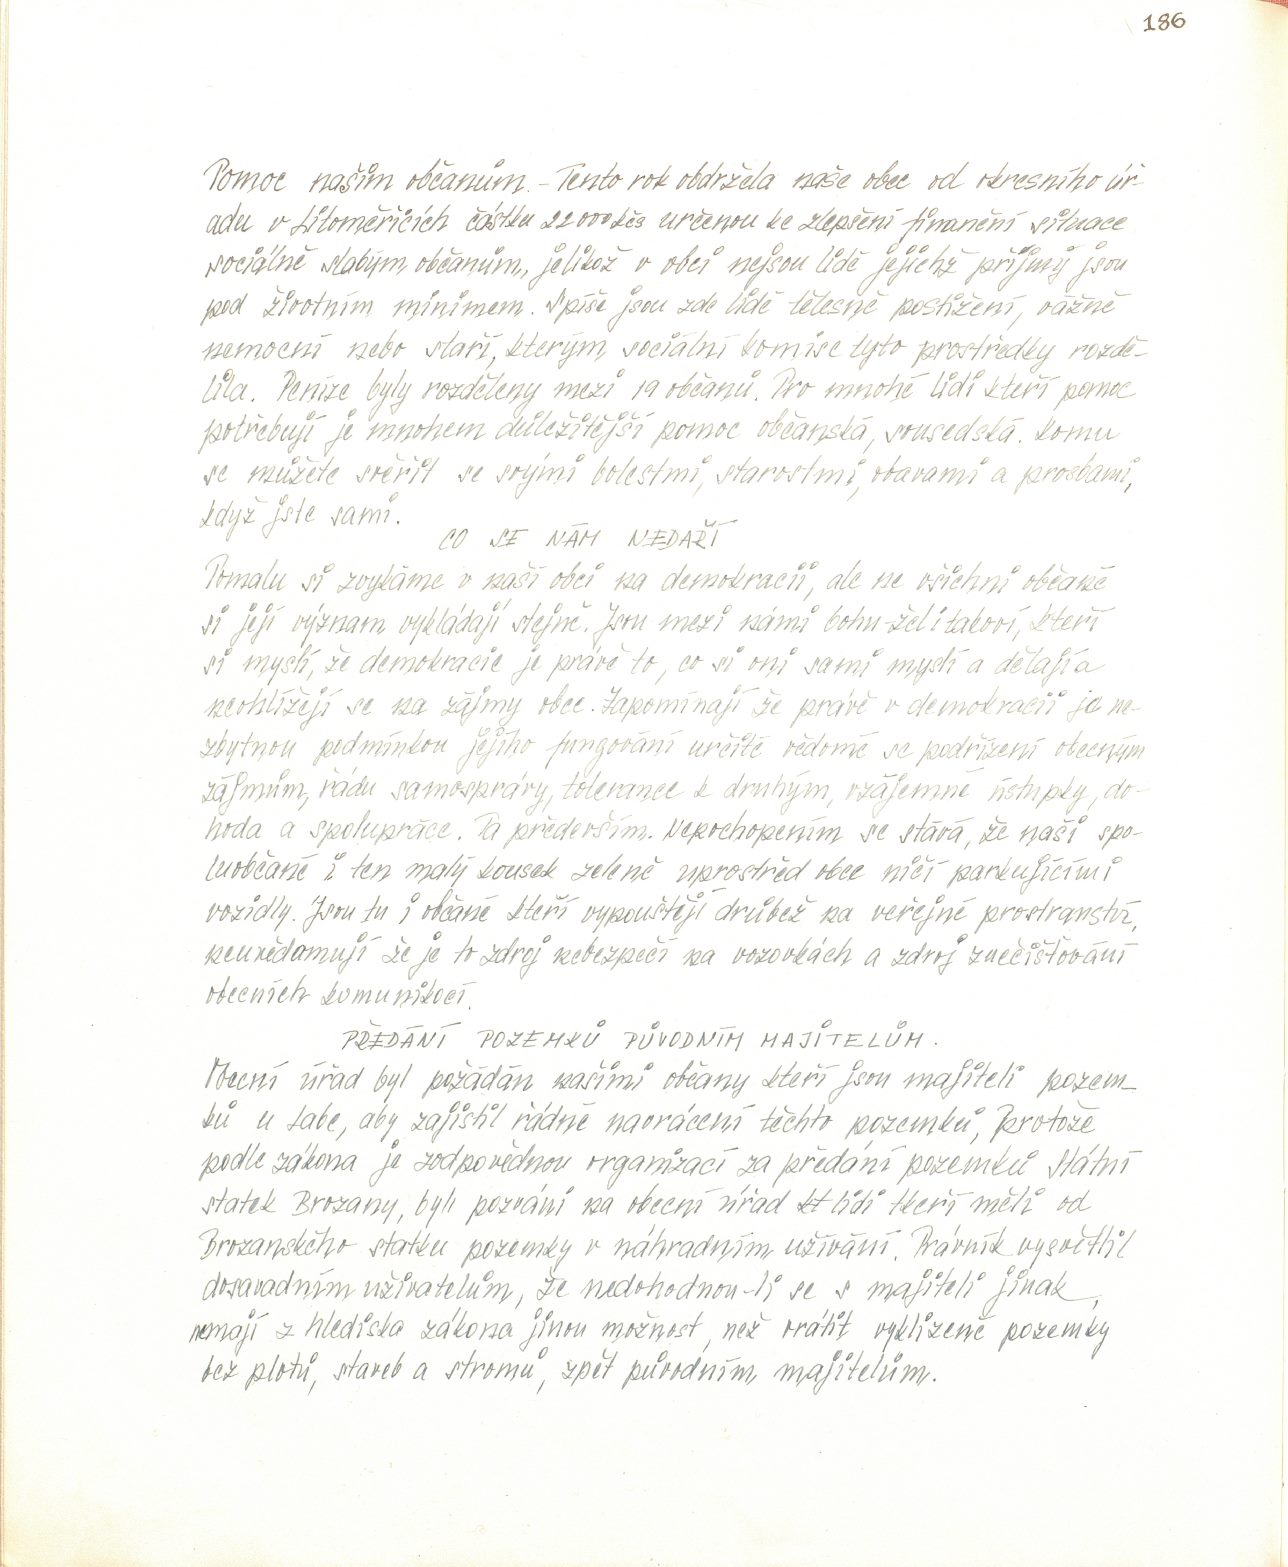 186
Pomoc našim občanům. - Tento rok obdržela naše obec od okresního úř-
adu v Litoměřicích částku 22 000 kčs určenou ke zlepšení finanční situace
sociálně slabým občanům, jelikož v obci nejsou lidé jejichž příjmy jsou
pod životním minimem. Spíše jsou zde lidé tělesně postižení, vážně
nemocní nebo staří, kterým sociální komise tyto prostředky rozdě-
lila. Peníze byly rozděleny mezi 19 občanů. Pro mnohé lidi kteří pomoc
potřebují je mnohem důležitější pomoc občanská, sousedská. komu
se můžete svěřit se svými bolestmi, starostmi, obavami a prosbami,
když jste sami.
CO SE NÁM NEDAŘÍ
Pomalu si zvykáme v naší obci na demokracii, ale ne všichni občané
si její význam vykládají stejně. Jsou mezi námi bohu-žel i takoví, kteří
si myslí, že demokracie je právě to, co si oni sami myslí a dělají a
neohlížejí se na zájmy obce. Zapomínají že právě v demokracii je ne-
zbytnou podmínkou jejího fungování určité vědomé se podřízení obecným
zájmům, řádu samosprávy, tolerance k druhým, vzájemné ústupky, do-
hoda a spolupráce. Ta především. Nepochopením se stává, že naši spo-
luobčané i ten malý kousek zeleně uprostřed obce ničí parkujícími
vozidly. Jsou tu i občané kteří vypouštějí drůbež na veřejné prostranství,
neuvědamují že je to zdroj nebezpečí na vozovkách a zdroj znečišťování
obecních komunikací.
PŘEDÁNÍ POZEMKŮ PŮVODNÍM MAJITELŮM.
Obecní úřad byl požádán našimi občany kteří jsou majiteli pozem-
ků u Labe, aby zajistil řádné navrácení těchto pozemků, Protože
podle zákona je zodpovědnou organizací za předání pozemků Státní
statek Brozany, byli pozváni na obecní úřad ti lidi kteří měli od
Brozanského statku pozemky v náhradním užívání. Právník vysvětlil
dosavadním uživatelům, že nedohodnou-li se s majiteli jinak,
nemají z hlediska zákona jinou možnost, než vrátit vyklizené pozemky
bez plotů, staveb a stromů, zpět původním majitelům.